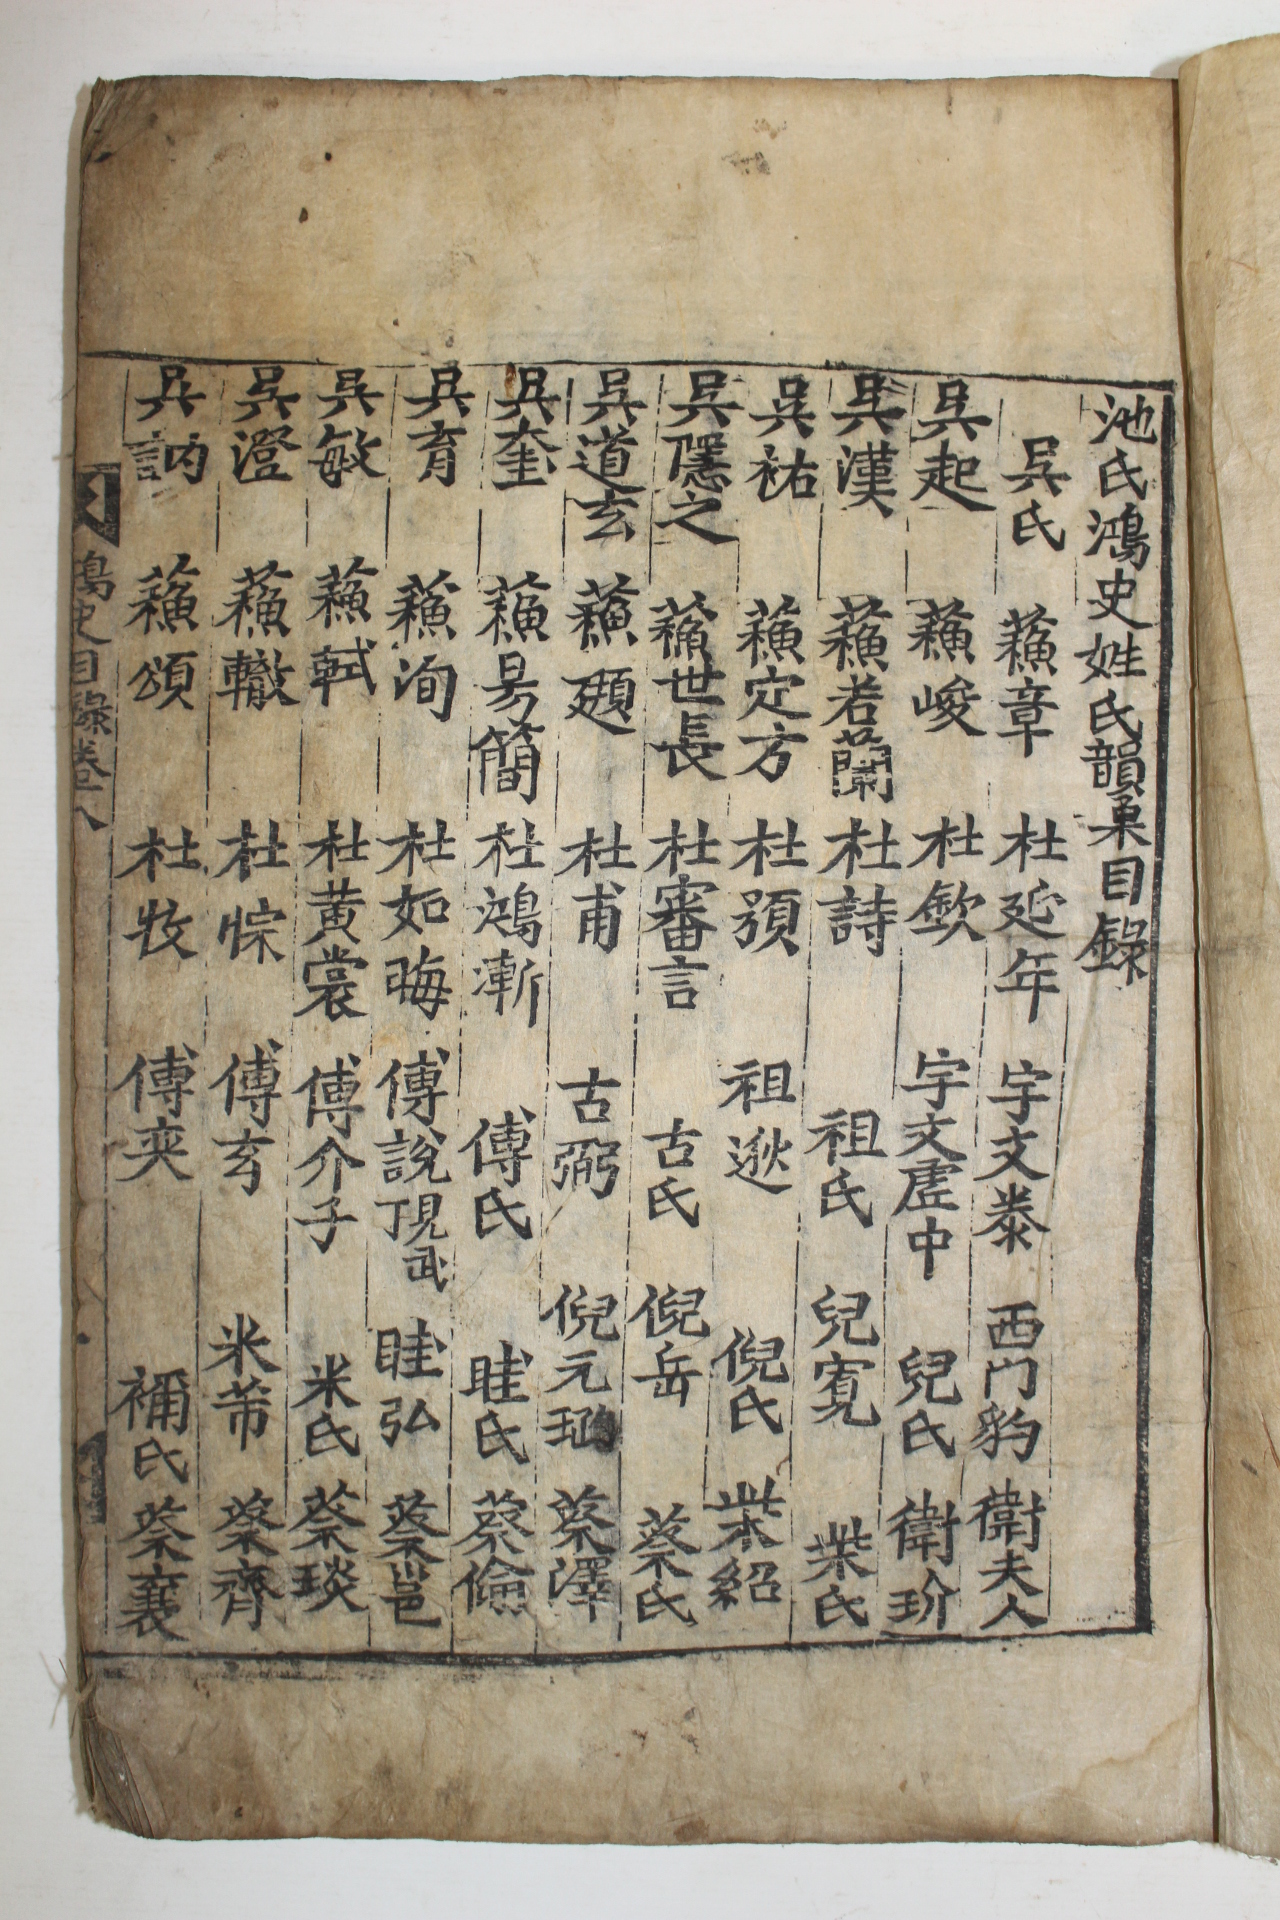 池氏鴻史姓氏韻彙目錄
吳氏 蘓章 杜延年 宇文泰 西門豹 衛夫人
吳起 蘓峻 杜欽 宇文虛中 兒氏 衛玠
吳漢 蘓若蘭 杜詩 祖氏 兒寬 柴氏
吳祐 蘓定方 杜預 祖逖 倪氏 柴紹
吳隱之 蘓世長 杜審言 古氏 倪岳 蔡氏
吳道玄 蘓頲 杜甫 古弼 倪元璐 蔡澤
吳奎 蘓易簡 杜鴻漸 傅氏 眭氏 蔡倫
吳育 蘓洵 杜如晦 傅說 丁現武 眭弘 蔡邕
吳敏 蘓軾 杜黃裳 傅介子 米氏 蔡琰
吳澄 蘓轍 杜悰 傅玄 米芾 蔡齊
吳訥 蘓頌 杜牧 傅奕 禰氏 蔡襄
鴻史目錄卷八